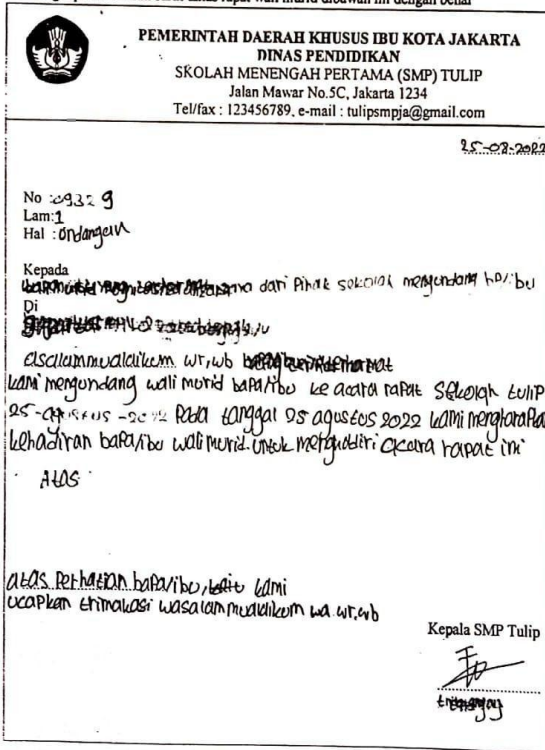 PEMERINTAH DAERAH KHUSUS IBU KOTA JAKARTA
DINAS PENDIDIKAN
SKOLAH MENENGAH PERTAMA (SMP) TULIP
Jalan Mawar No.5C, Jakarta 1234
Tel/fax : 123456789, e-mail : tulipsmpja@gmail.com
25-08-2022
No : 0932 9
Lam:1
Hal : Ondangan
Kepada
dari Pihak sekolah mengundang ba/ibu
Di
asalammualaikum wr,wb
kami mengundang wali murid bapa/ibu ke acara rapat sekolah tulip
25-agustus-2022 Pada tanggal 25 agustus 2022 kami mengharapkan
kehadiran bapa/ibu wali murid untuk menghadiri acara rapat ini
Atas
atas Perhatian bapa/ibu, kami
ucapkan trimakasi wasalammualaikum wa.wr,wb
Kepala SMP Tulip